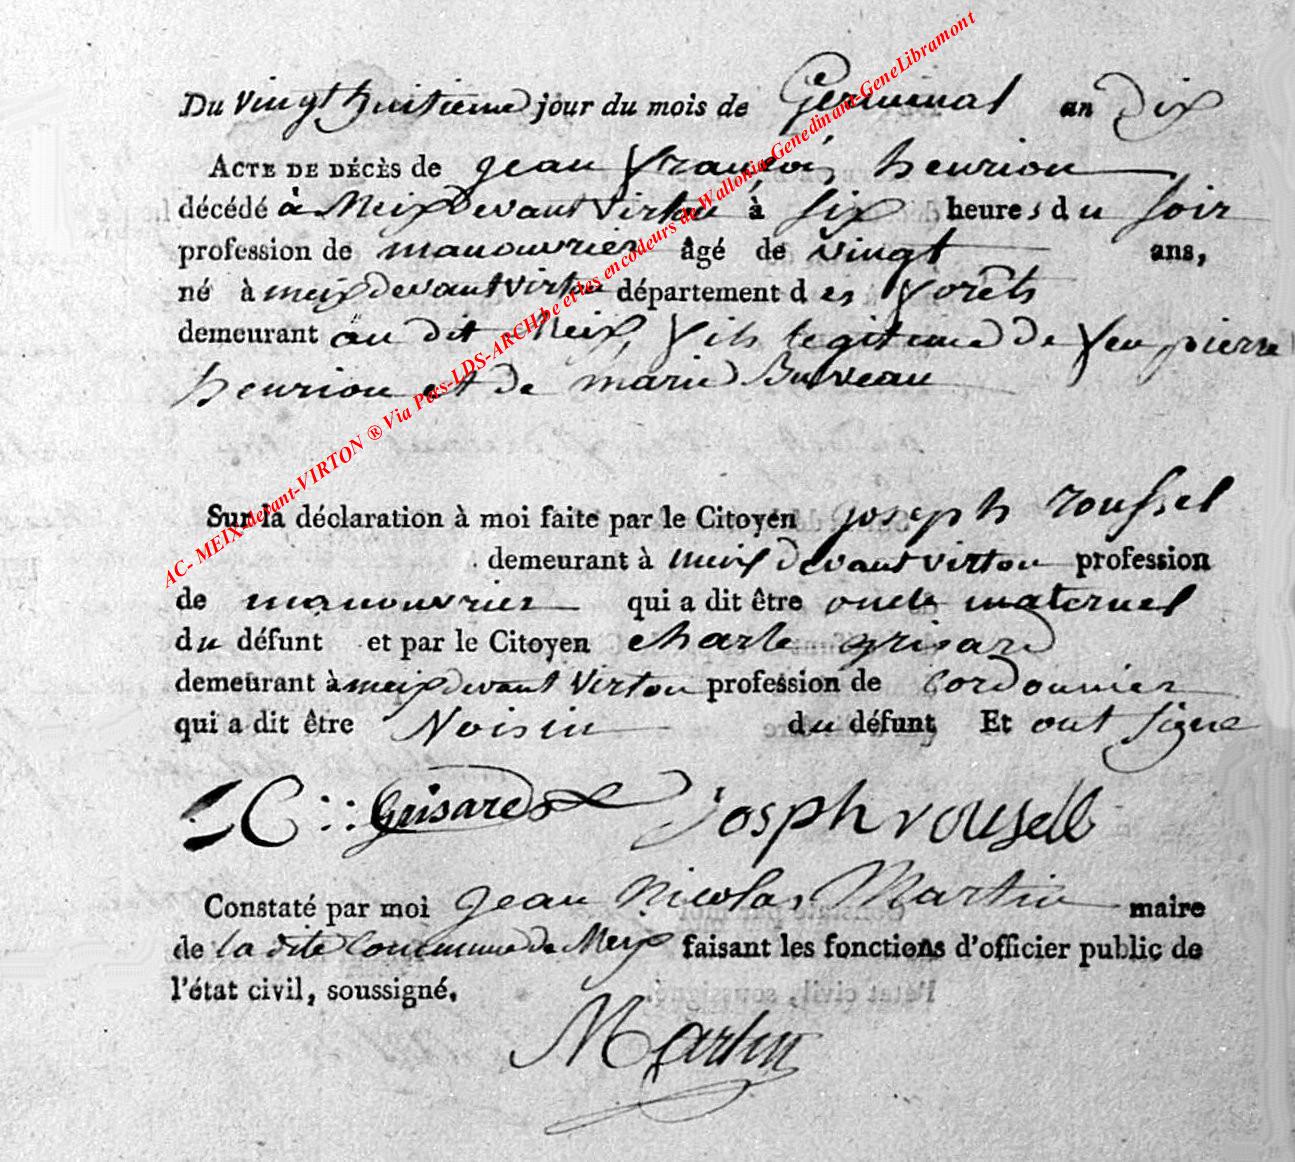 Du vingt huitieme jour du mois de Germinal an Dix
ACTE DE DÉCÈS de jean françois henrion
décédé à Meix Devant Virton à six heures du soir
profession de manouvrier âgé de vingt ans,
né à meix devant virton département des forêts
demeurant au dit Meix, fils legitime de feu pierre
henrion et de marie Buveau
Sur la déclaration à moi faite par le Citoyen joseph roussel
demeurant à meix devant virton profession
de manouvrier qui a dit être oncle maternel
du défunt et par le Citoyen charle grisard
demeurant à meix devant Virton profession de Cordonnier
qui a dit être Voisin du défunt Et ont signe
C :: Grisard Josph rousell
Constaté par moi jean nicolas Martin maire
de la dite Commune de Meix faisant les fonctions d'officier public de
l'état civil, soussigné.
Martin
AC- MEIX-devant-VIRTON ® Via Pers-LDS-ARCH.be et les encodeurs de Wallonia-Genedinant-GeneLibramont